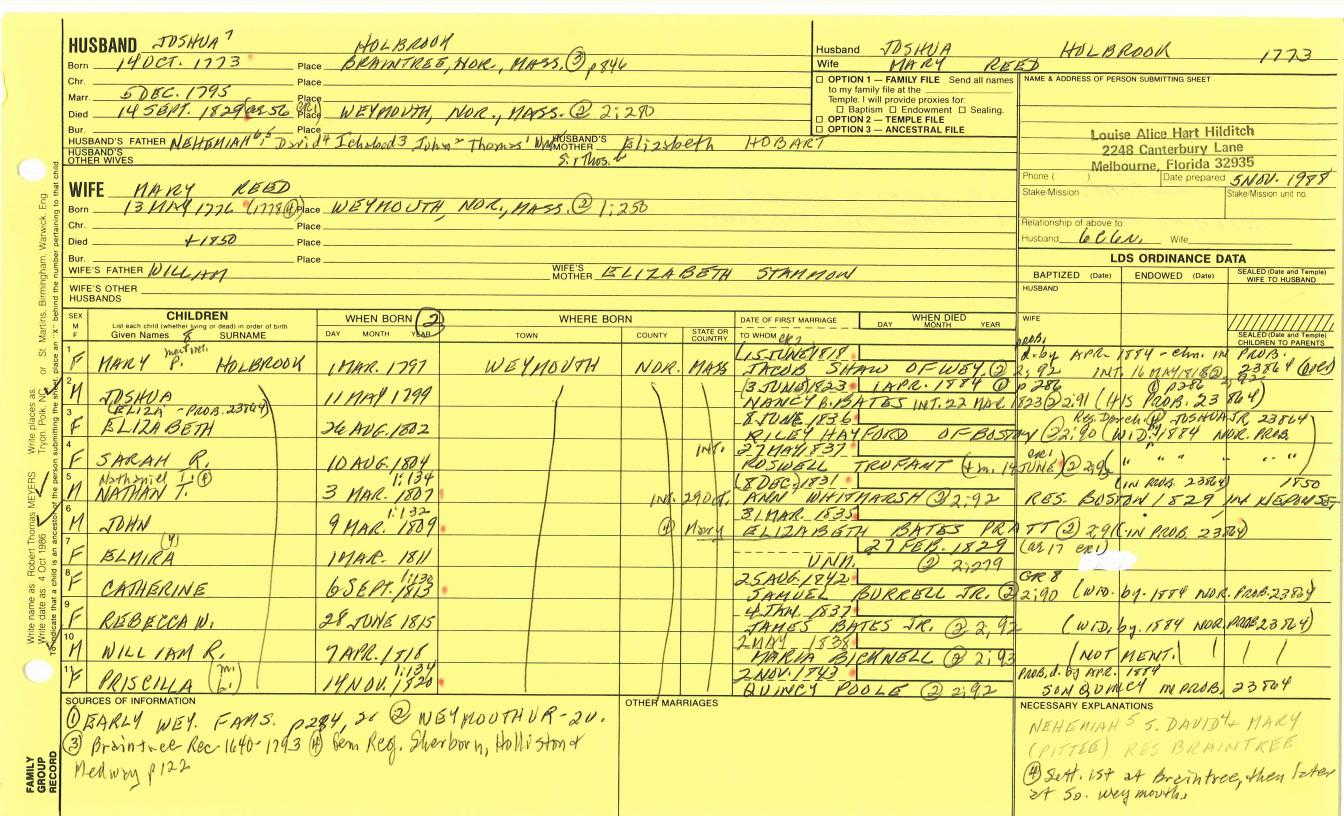 HUSBAND JOSHUA 7 HOLBROOK
Born 14 OCT. 1773 Place BRAINTREE, NOR., MASS. ③ p846
Chr. Place
Marr. 5 DEC. 1795 Place
Died 14 SEPT. 1829 Place WEYMOUTH, NOR., MASS. ② 2:280
Bur. Place
HUSBAND'S FATHER NEHEMIAH David4 Ichabod3 John2 Thomas1 HUSBAND'S MOTHER Elizabeth HOBART
HUSBAND'S OTHER WIVES
Husband JOSHUA HOLBROOK 1773
Wife MARY REED
☐ OPTION 1 — FAMILY FILE Send all names
to my family file at the
Temple. I will provide proxies for:
☐ Baptism ☐ Endowment ☐ Sealing.
☐ OPTION 2 — TEMPLE FILE
☐ OPTION 3 — ANCESTRAL FILE
NAME & ADDRESS OF PERSON SUBMITTING SHEET
Louise Alice Hart Hilditch
2248 Canterbury Lane
Melbourne, Florida 32935
Phone ( ) Date prepared 5 NOV. 1988
Stake/Mission Stake/Mission unit no.
Relationship of above to:
Husband Wife
WIFE MARY REED
Born 13 MAY 1776 (1778 ④) Place WEYMOUTH, NOR., MASS. ② 1:250
Chr. Place
Died +1850 Place
Bur. Place
WIFE'S FATHER WILLIAM WIFE'S MOTHER ELIZABETH STAMMON
WIFE'S OTHER HUSBANDS
LDS ORDINANCE DATA
BAPTIZED (Date) ENDOWED (Date) SEALED (Date and Temple) WIFE TO HUSBAND
HUSBAND
WIFE
SEALED (Date and Temple) CHILDREN TO PARENTS
SEX M F CHILDREN WHEN BORN ② WHERE BORN DATE OF FIRST MARRIAGE WHEN DIED
List each child (whether living or dead) in order of birth
Given Names SURNAME DAY MONTH YEAR TOWN COUNTY STATE OR COUNTRY TO WHOM DAY MONTH YEAR
1 F MARY P. HOLBROOK 1 MAR. 1797 WEYMOUTH NOR. MASS 15 JUNE 1818 d. by APR. 1884 - chn. in PROB. 23864
JACOB SHAW OF WEY. ② 2:92 INT. 16 MAY 1818
2 M JOSHUA 11 MAY 1799 13 JUNE 1823 1 APR. 1884 ① p286
NANCY B. BATES INT. 22 MAR 1823 ② 2:91 (HIS PROB. 23864)
3 F (ELIZA - PROB. 23864) ELIZABETH 26 AUG. 1802 8 JUNE 1836 JOSHUA JR. 23864
RILEY HAYFORD OF BOSTON ② 2:90 (WID. by 1884 NOR. PROB.
4 F SARAH R. 10 AUG. 1804 INT. 27 MAY 1837
ROSWELL TRUFANT (+m. 14 JUNE) ② 2:93 " " " "
5 M Nathaniel T. ④ NATHAN T. 3 MAR. 1807 1:134 INT. 29 Oct. 8 DEC. 1831 (IN PROB. 23864) 1850
ANN WHITMARSH ② 2:92 RES. BOSTON 1829 IN NEPONSET
6 M JOHN 9 MAR. 1809 1:132 ④ Mary 31 MAR. 1835
ELIZABETH BATES PRATT ② 2:91 (IN PROB. 23864)
7 F ELMIRA 1 MAR. 1811 27 FEB. 1829 (ae 17 CR1)
UNM. ② 2:279
8 F CATHERINE 6 SEPT. 1813 25 AUG. 1842 GR 8
SAMUEL BURRELL JR. ② 2:90 (WID. by 1884 NOR. PROB. 23864)
9 F REBECCA W. 28 JUNE 1815 4 JAN. 1837
JAMES BATES JR. ② 2:92 (WID. by 1884 NOR. PROB 23864)
10 M WILLIAM R. 7 APR. 1818 2 MAY 1838
MARIA BICKNELL ② 2:93 (NOT MENT.)
11 F PRISCILLA 14 NOV. 1820 1:134 2 NOV. 1843 PROB. d. by APR. 1884
QUINCY POOLE ② 2:92 SON QUINCY IN PROB. 23864
SOURCES OF INFORMATION
① EARLY WEY. FAMS. p284, 26 ② WEYMOUTH VR - 2v.
③ Braintree Rec - 1640-1793 ④ Gen Reg. Sherborn, Holliston &
Medway p122
OTHER MARRIAGES
NECESSARY EXPLANATIONS
NEHEMIAH 5 S. DAVID 4 & MARY
(PITTEE) RES BRAINTREE
④ Sett. 1st at Braintree, then later
at So. Weymouth.
Write name as Robert Thomas MEYERS Write places as: Tryon, Polk, NC or St. Martins, Birmingham, Warwick, Eng
Write date as 4 Oct 1986
FAMILY GROUP RECORD